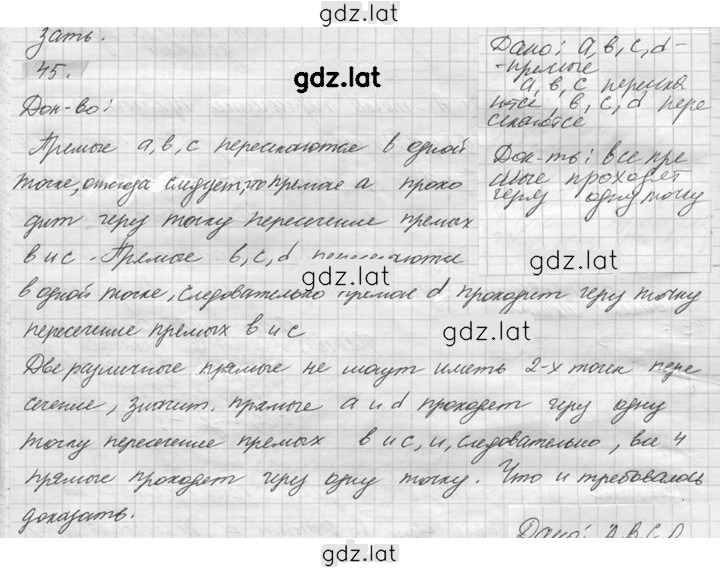 gdz.lat
зать.
45.
gdz.lat
Док-во:
Прямые а, в, с пересекаются в одной
точке, отсюда следует, что прямая а прохо
дит через точку пересечение прямых
в и с. Прямые в, с, d
в одной точке, следовательно прямая d проходит через точку
пересечение прямых в и с
Две различные прямые не могут иметь 2-х точек пере
сечение, значит. прямые а и d проходят через одну
точку пересечение прямых в и с, и, следовательно, все 4
прямые проходят через одну точку. Что и требовалось
доказать.
Дано: а, в, с, d-
-прямые
а, в, с пересека
ются, в, с, d пере
секаются
Док-ть: все пря
мые проходят
через одну точку
gdz.lat
gdz.lat
gdz.lat
gdz.lat
Дано: А, В, С, D
gdz.lat